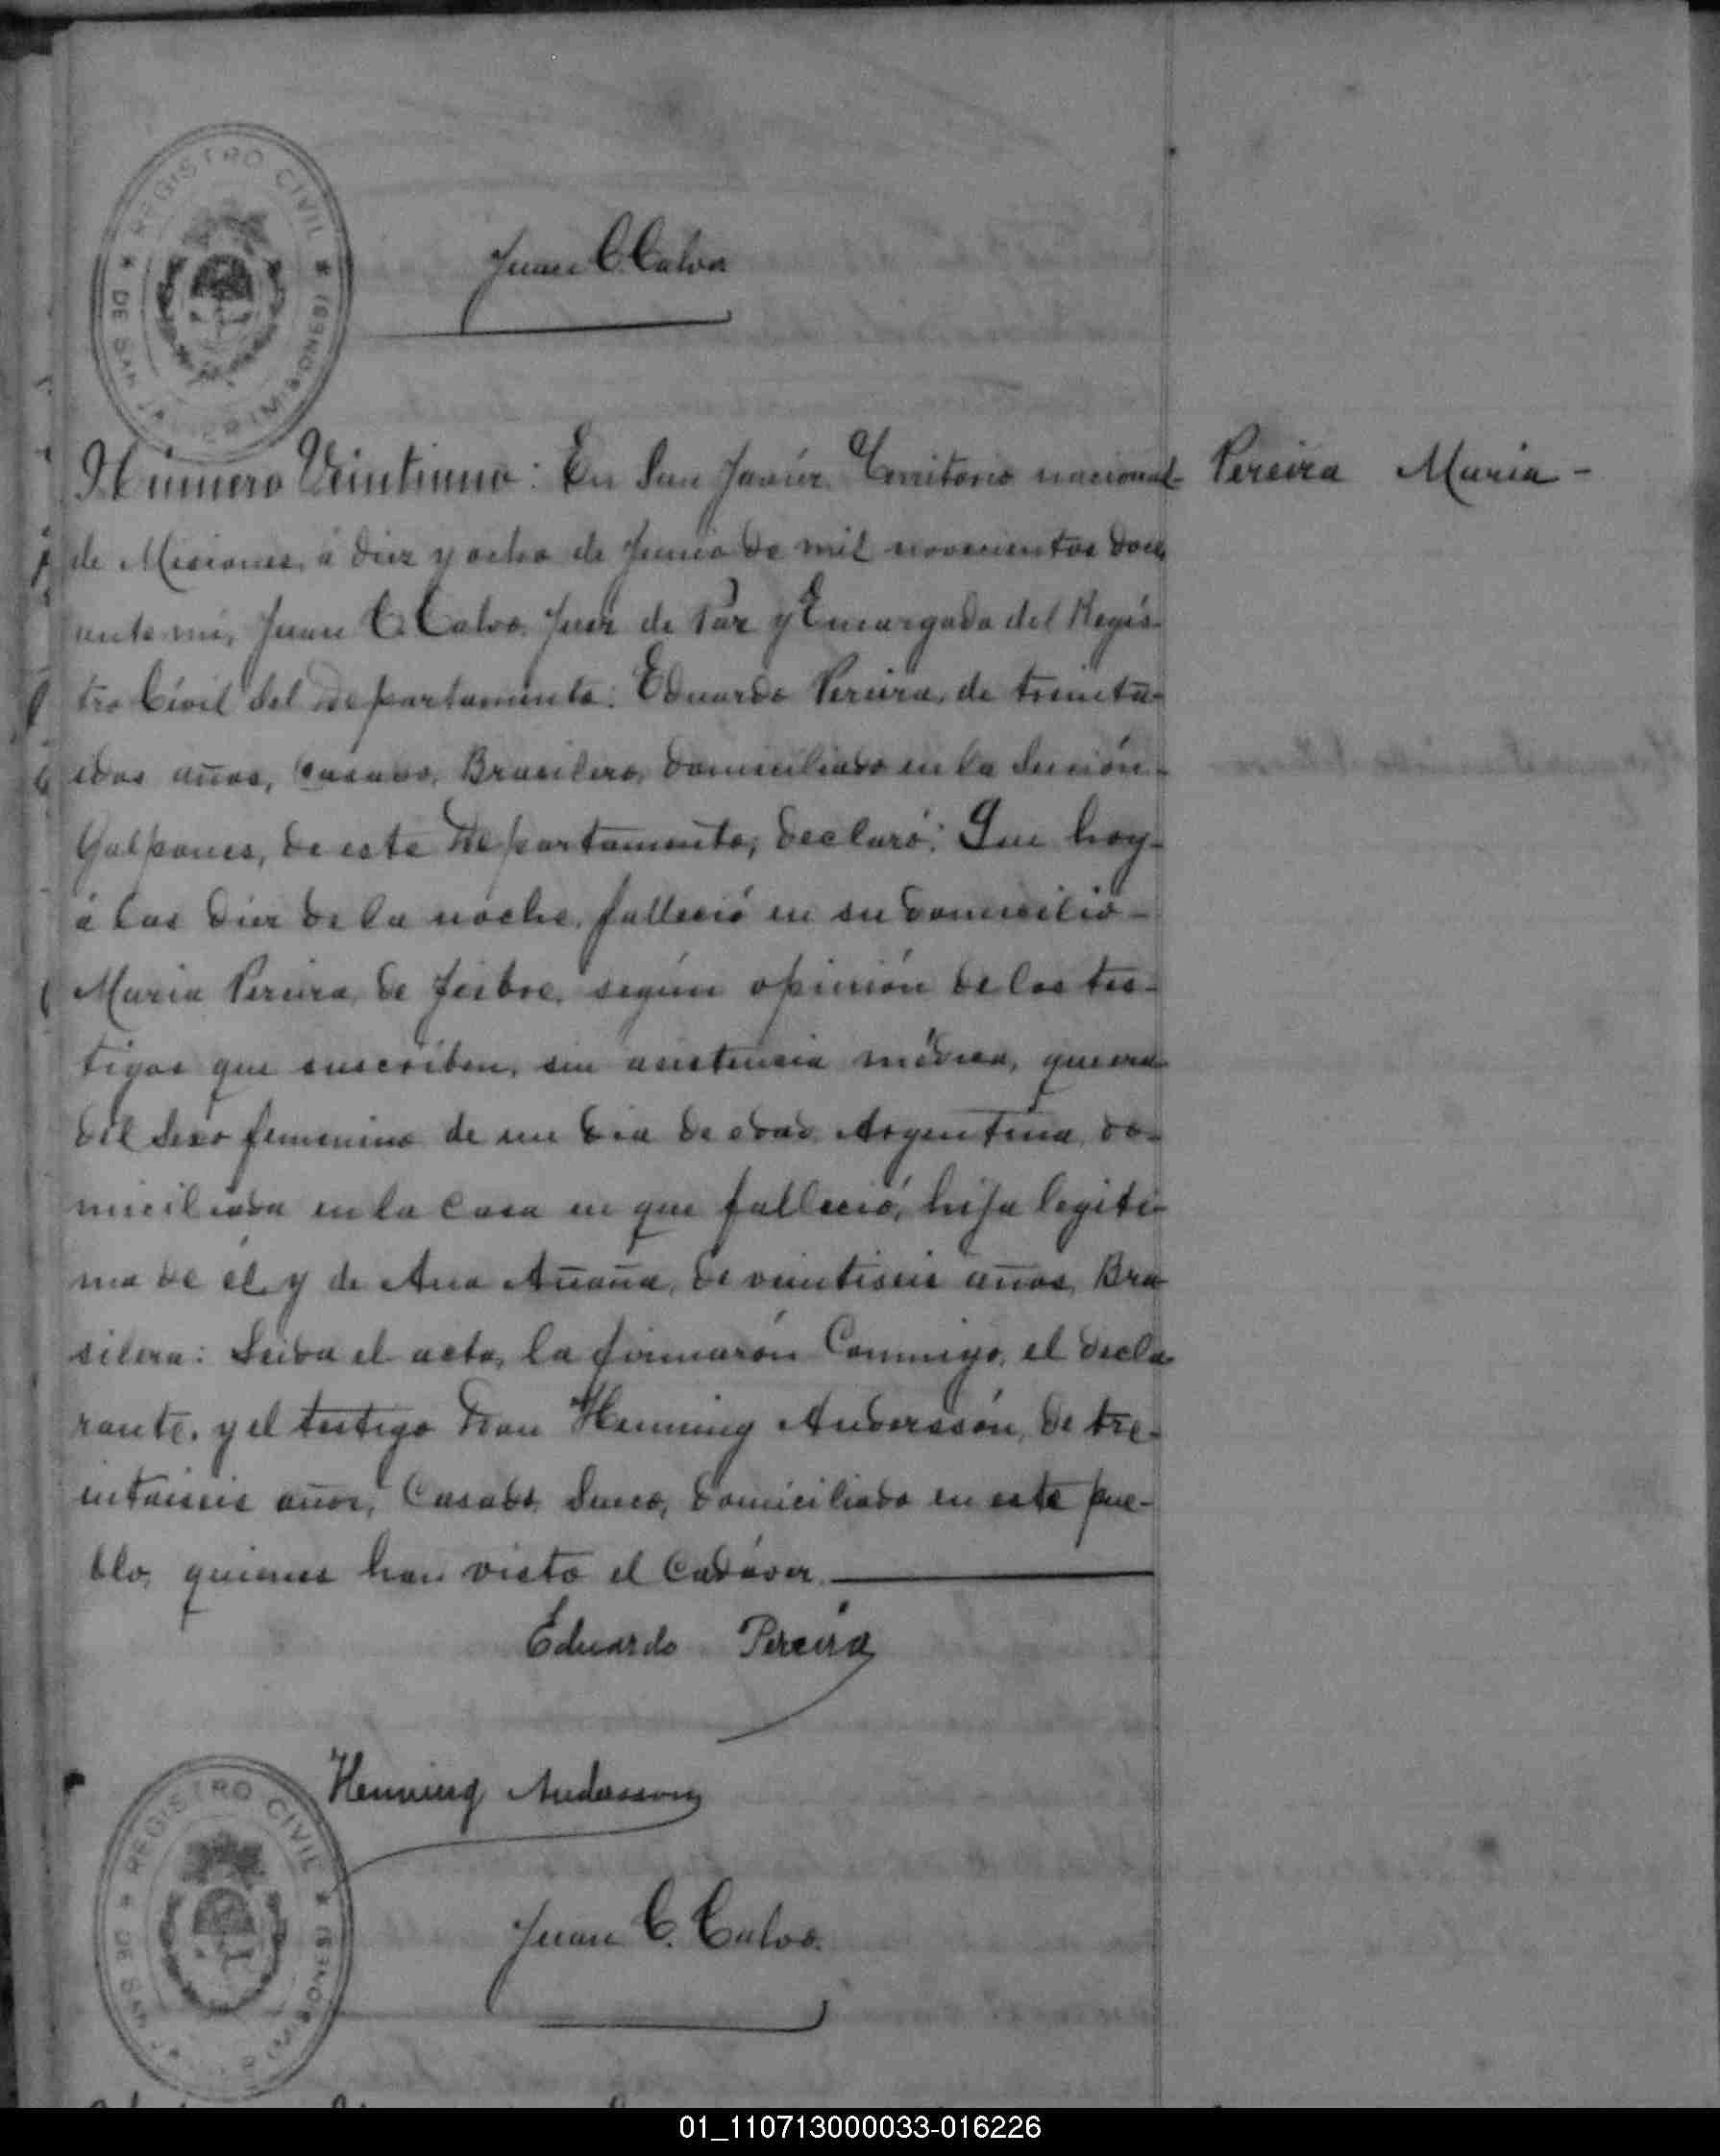 REGISTRO CIVIL
DE SAN J (MISIONES)
Juan C. Calvo
Número Veintiuno: En San Javier, Territorio nacional- Pereira María -
de Misiones, á diez y ocho de Junio de mil novecientos doce,
ante mí, Juan C. Calvo, Juez de Paz y Encargado del Regis-
tro Civil del Departamento: Eduardo Pereira, de treinta-
idos años, Casado, Brasilero, domiciliado en la Sección-
Galpones, de este Departamento, declaró: Que hoy-
á las diez de la noche, falleció en su domicilio-
María Pereira, de fiebre, según opinión de los tes-
tigos que suscriben, sin asistencia médica, que era
del sexo femenino de un día de edad, Argentina, do-
miciliada en la casa en que falleció, hija legíti-
ma de él y de Ana Añaña, de veintiseis años, Bra-
silera: Leida el acta, la firmarón Conmigo, el decla-
rante, y el testigo Don Henning Anderssón, de tre-
intaiseis años, Casado, Sueco, domiciliado en este pue-
blo, quienes han visto el Cadáver.
Eduardo Pereira
Henning Andersson
REGISTRO CIVIL
DE SAN J (MISIONES)
Juan C. Calvo.
01_110713000033-016226